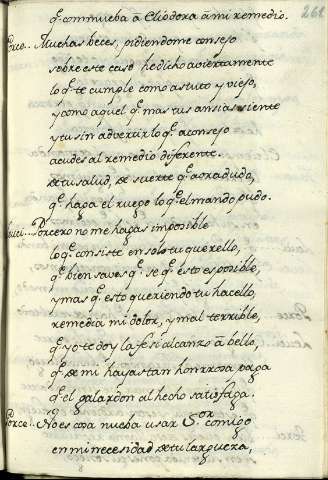 261
q̃. commueba à Cliodora à mi remedio.
Porce. Muchas beces, pidiendome consejo
sobre este caso he dicho aviertamente
lo q̃. te cumple como astuto y viejo,
y como aquel q̃. mas tus ansias siente
y tu sin advertir lo q̃. aconsejo
acudes al remedio diferente.
de tu salud, de suerte q̃.
q̃. haga el ruego lo q̃. el mando pudo.
Porcero no me hagas imposible
lo q̃. consiste en solo tu querello,
q̃. bien saves q̃. se q̃. esto es posible,
y mas q̃. esto queriendo tu hacello,
remedia mi dolor, y mal terrible,
q̃. yo te doy la fe si alcanzo à bello,
q̃. de mi hayas tan honrrosa paga
q̃. el galardon al hecho satisfaga.
Porce. No es cosa nueba usar S.or comigo
en mi necesidad de tu largueza,